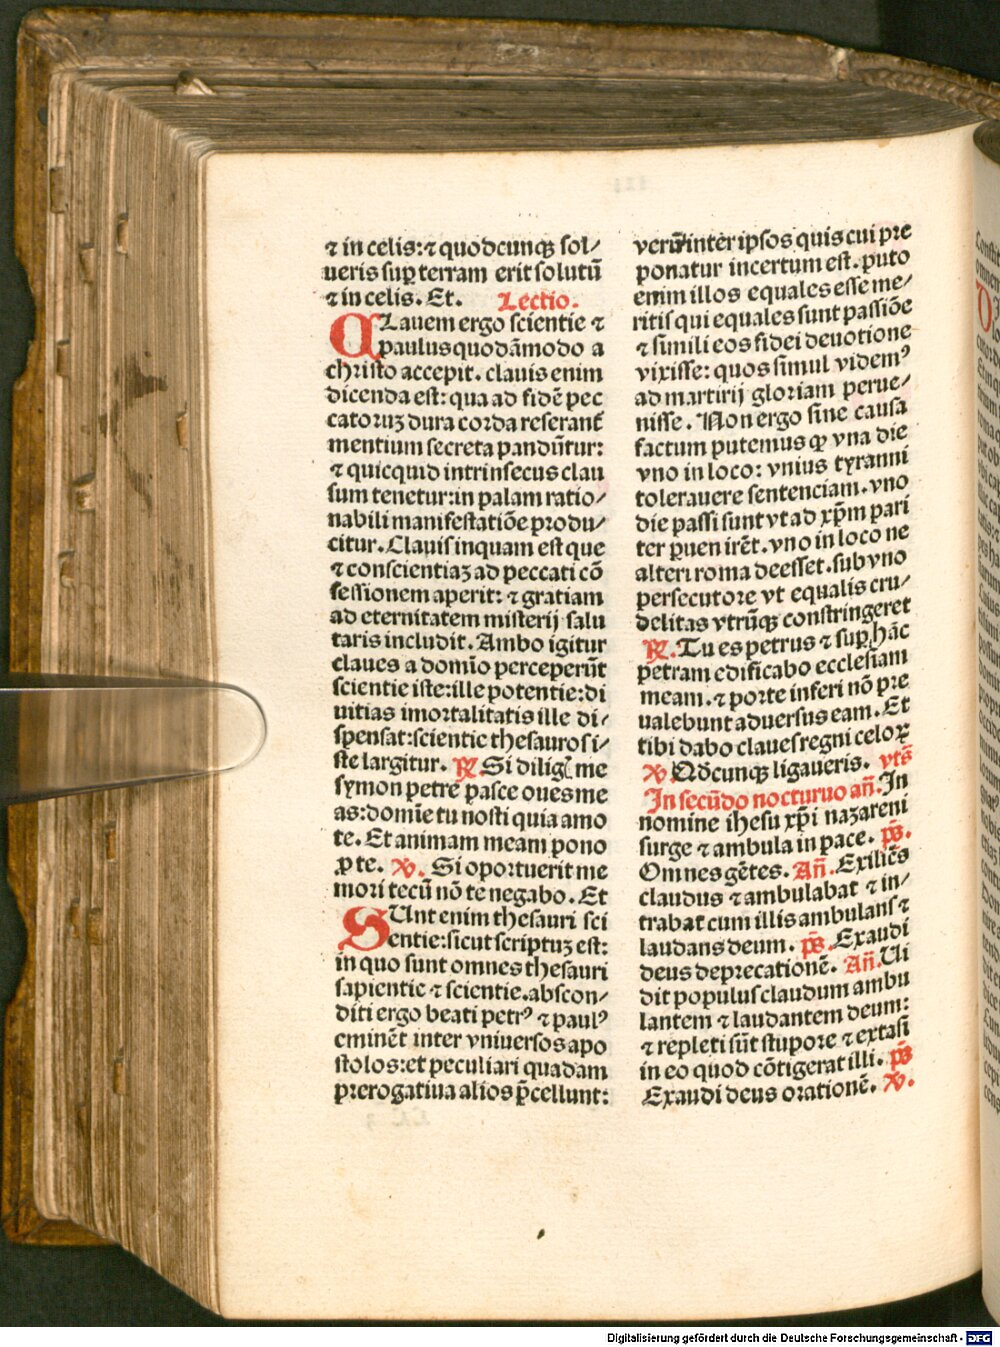 ⁊ in celis: ⁊ quodcunqꝫ sol⸗
ueris suꝑ terram erit solutū
⁊ in celis. Et. Lectio.
CLauem ergo scientie ⁊
paulus quodāmodo a
christo accepit. clauis enim
dicenda est: qua ad fidē pec
catoruꝫ dura corda reserant᷑
mentium secreta pandūtur:
⁊ quicquid intrinsecus clau
sum tenetur: in palam ratio⸗
nabili manifestatiōe produ⸗
citur. Clauis inquam est que
⁊ conscientiaꝫ ad peccati cō
fessionem aperit: ⁊ gratiam
ad eternitatem misterij salu
taris includit. Ambo igitur
claues a domīo perceperūt
scientie iste: ille potentie: di
uitias imortalitatis ille di⸗
spensat: scientie thesauros i⸗
ste largitur. ℟. Si dilig᷑ me
symon petre pasce oues me
as: domīe tu nosti quia amo
te. Et animam meam pono
ꝓ te. ℣. Si oportuerit me
mori tecū nō te negabo. Et
SUnt enim thesauri sci
entie: sicut scriptuꝫ est:
in quo sunt omnes thesauri
sapientie ⁊ scientie. abscon⸗
diti ergo beati petrꝰ ⁊ paulꝰ
eminēt inter vniuersos apo
stolos: et peculiari quadam
prerogatiua alios p̄cellunt:
verū inter ipsos quis cui pre
ponatur incertum est. puto
enim illos equales esse me⸗
ritis qui equales sunt passiōe
⁊ simili eos fidei deuotione
vixisse: quos simul videmꝰ
ad martirij gloriam perue⸗
nisse. Non ergo sine causa
factum putemus ꝙ vna die
vno in loco: vnius tyranni
tolerauere sentenciam. vno
die passi sunt vt ad xp̄m pari
ter ꝑuenirēt. vno in loco ne
alteri roma deesset. sub vno
persecutore vt equalis cru⸗
delitas vtrūqꝫ constringeret
℟. Tu es petrus ⁊ suꝑ hāc
petram edificabo ecclesiam
meam. ⁊ porte inferi nō pre
ualebunt aduersus eam. Et
tibi dabo claues regni celoꝝ
℣. Qdcunqꝫ ligaueris. vts̄
In secūdo nocturuo an̄. In
nomine ihesu xp̄i nazareni
surge ⁊ ambula in pace. ps̄.
Omnes gētes. An̄. Exiliēs
claudus ⁊ ambulabat ⁊ in⸗
trabat cum illis ambulans ⁊
laudans deum. ps̄. Exaudi
deus deprecationē. An̄. Ui
dit populus claudum ambu
lantem ⁊ laudantem deum:
⁊ repleti sūt stupore ⁊ extasi
in eo quod cōtigerat illi. ps̄
Exaudi deus orationē. ℣.
Digitalisierung gefördert durch die Deutsche Forschungsgemeinschaft - DFG